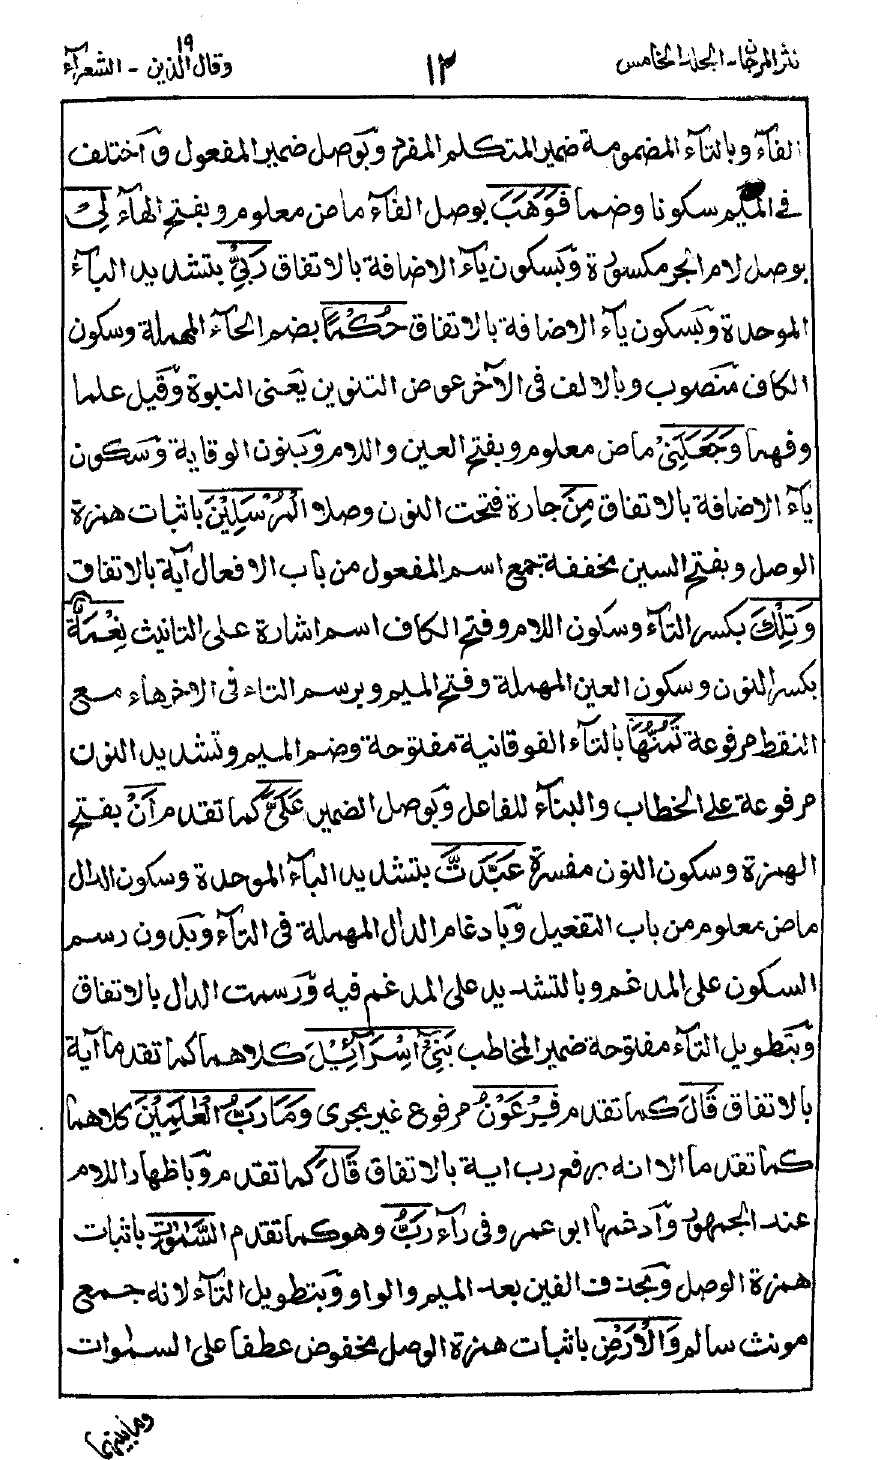 نثر المرجان - المجلد الخامس
١٢
وقال الذين ١٩ - الشعرآء
الفآء وبالتآء المضمومة ضمير المتكلم المفرد وبوصل ضمير المفعول وآختلف
في الميم سكونا وضما فَوَهَبَ بوصل الفآء ماض معلوم وبفتح الهآء لِيْ
بوصل لام الجر مكسورة وبسكون يآء الاضافة بالاتفاق رَبِّيْ بتشديد البآء
الموحدة وبسكون يآء الاضافة بالاتفاق حُكْمًا بضم الحآء المهملة وسكون
الكاف منصوب وبالالف في الآخر عوض التنوين يعنى النبوة وقيل علما
وفهما وَجَعَلَنِيْ ماض معلوم وبفتح العين واللام وبنون الوقاية وسكون
يآء الاضافة بالاتفاق مِنَ جارة فتحت النون وصلا الْمُرْسَلِيْنَ باثبات همزة
الوصل وبفتح السين مخففة جمع اسم المفعول من باب الافعال آية بالاتفاق
وَتِلْكَ بكسر التآء وسكون اللام وفتح الكاف اسم اشارة على التانيث نِعْمَةٌ
بكسر النون وسكون العين المهملة وفتح الميم وبرسم التاء فى الاخرهاء مع
النقط مرفوعة تَمُنُّهَا بالتآء الفوقانية مفتوحة وضم الميم وتشديد النون
مرفوعة على الخطاب والبنآء للفاعل وبوصل الضمير عَلَيَّ كما تقدم اَنْ بفتح
الهمزة وسكون النون مفسرة عَبَّدْتَّ بتشديد البآء الموحدة وسكون الدال
ماض معلوم من باب التفعيل وبادغام الدال المهملة فى التآء وبدون رسم
السكون على المدغم وبالتشديد على المدغم فيه ورسمت الدال بالاتفاق
وبتطويل التآء مفتوحة ضمير المخاطب بَنِيْٓ اِسْرَآئِيْلَ كلاهما كما تقدما آية
بالاتفاق قَالَ كما تقدم فِرْعَوْنُ مرفوع غير مجرى وَمَا رَبُّ الْعٰلَمِيْنَ كلاهما
كما تقدما الا انه برفع رب اية بالاتفاق قَالَ كما تقدم وباظهار اللام
عند الجمهور وآدغمها ابو عمرو فى رآء رَبُّ وهو كما تقدم السَّمٰوٰتِ باثبات
همزة الوصل وبحذف الفين بعد الميم والواو وبتطويل التآء لانه جمع
مونث سالم وَالْاَرْضِ باثبات همزة الوصل مخفوض عطفا على السمٰوات
ومابينهما